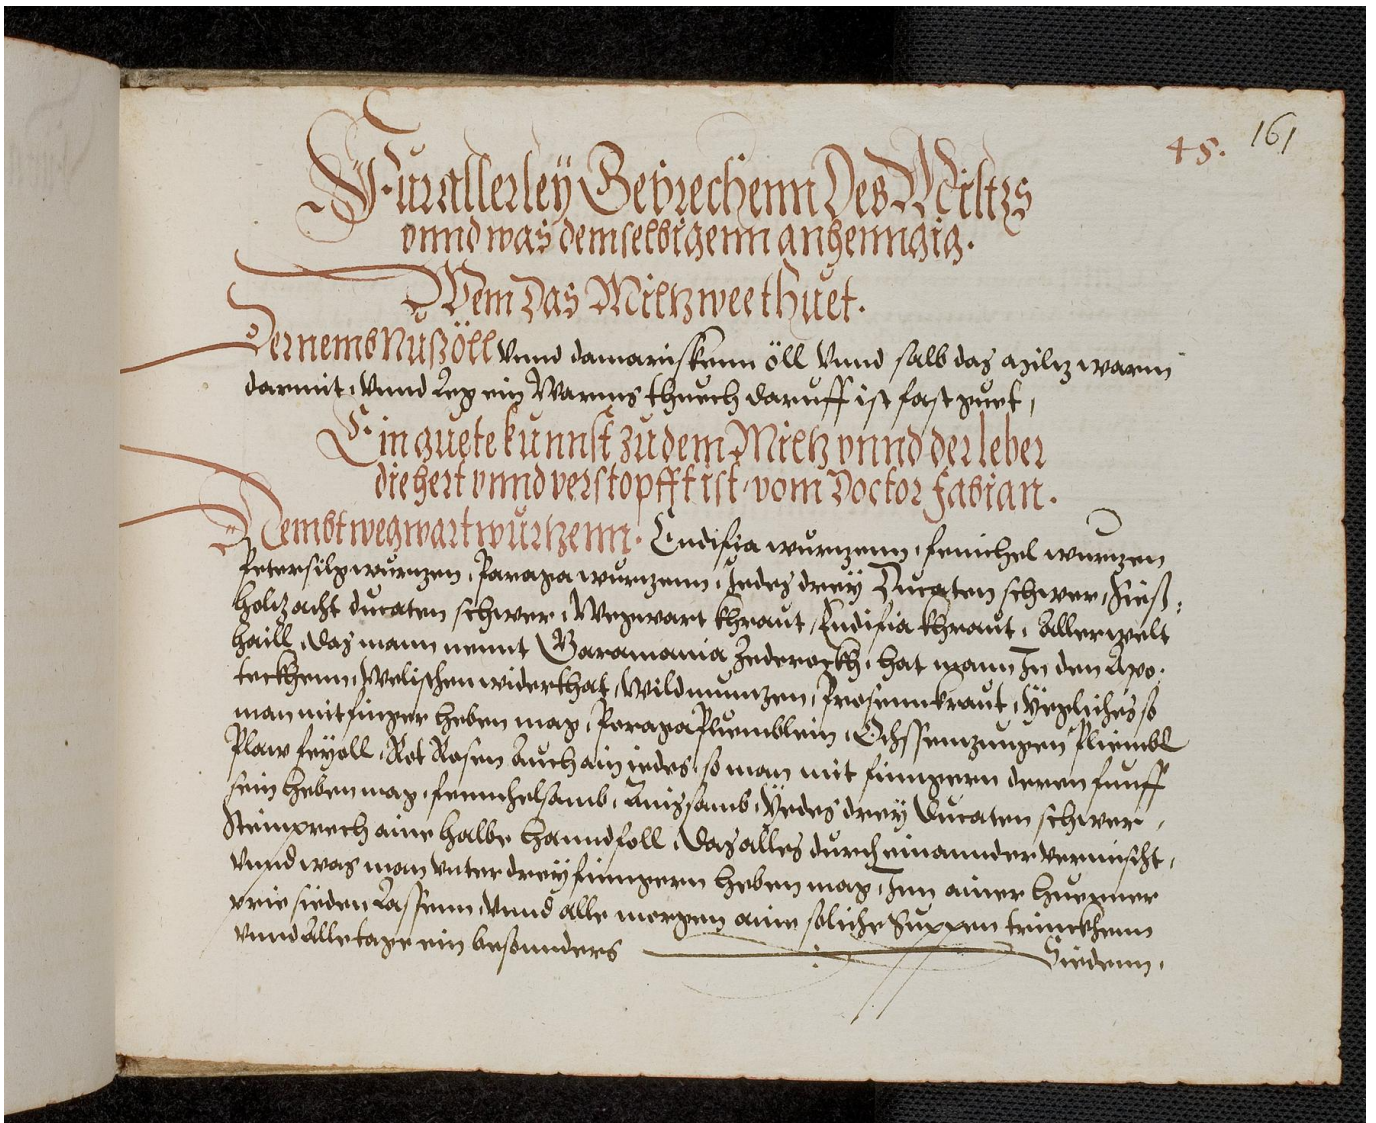 45. 161
Fur allerley Geprechenn Des Miltzs
vnnd was demselbigenn anhenngig.
Wem Das Miltz wee thuet.
Der nemb Nußöll Vnnd damariskenn öll Vnnd salb das miltz warm
darmit, Vnnd Leg ein Warms thuech daruff ist fast guet,
Ein guete kunnst zu dem Miltz vnnd der leber
die hert vnnd verstopfft ist, vom Doctor Fabian.
Nembt wegwart wurtzenn. Endifia wurtzenn, fenichel wurtzen
Petersilg wurtzen, Paraga wurtzenn, Jedes drey Ducaten schwer, Sieß,
holtz acht ducaten schwer, Wegwart khraut, Endifia khraut, Aller welt
haill, das mann nennt Garamania Zederockh, hat mann In den Apo.
teckhenn, Welischen widerthat, Wildmuntzen, Prosennkraut, Yegliches so
man mit finger heben mag, Poraga Pluemblein, Ochssennzungen Pliembl
Plaw feyoll, Rot Rosen Auch ain iedes, so man mit finngern deren funff
sein heben mag, fennchelsamb, Anissamb, Yedes drey Ducaten schwer,
Steinprech aine halbe hanndfoll, Das alles durch einannder vermischt,
Vnnd was man vnter drey finngern heben mag, Inn ainer huenner
prie sieden Lassenn, Vnnd alle morgen aine soliche Suppen trinckhenn
Vnnd Alle tage ein besonnders Siedenn,